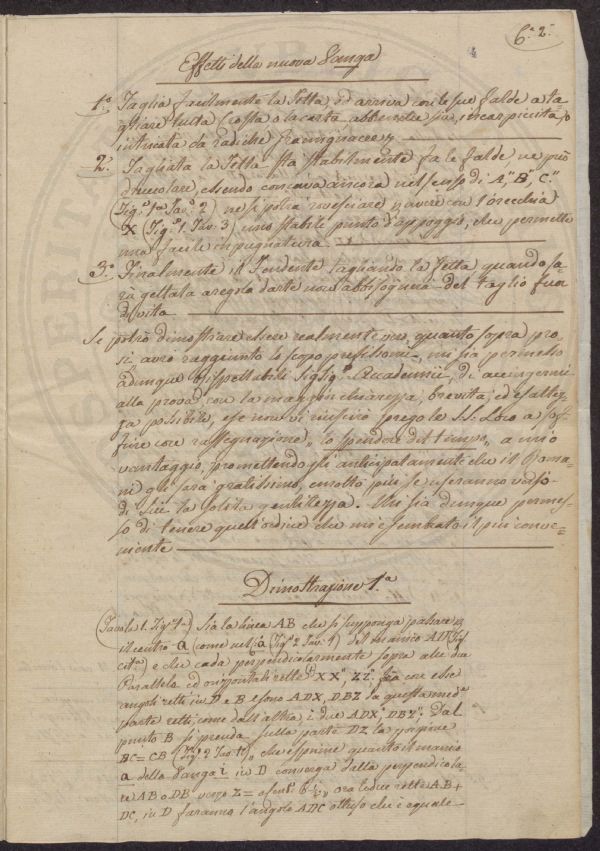 6.a 2.
Effetti della nuova Vanga
1.o Taglia facilmente la Fetta, ed arriva con le sue falde a ta=
gliare tutta la
intricata da radiche
2.o Tagliata la Fetta sta stabilmente fra le falde, ne può
essendo concava ancora nel senso di A," B," C,"
(Fig.a 1.a Tav. 2) ne si potrà rovesciare avere con l'orecchia
X (Fig.a 1. Tav. 3) uno stabile punto d'appoggio, che permette
una facile impugnatura.
3.o Finalmente il Fendente tagliando la Fetta quando sa=
rà gettata a regola d'arte non abbisognerà del taglio fuor
di vita
Se potrò dimostrare essere realmente quanto sopra pro=
avrò raggiunto lo scopo prefissomi, mi sia permesso
adunque Rispettabili Sigg.i Accademici, di accingermi
alla prova con la maggior chiarezza, brevità, ed esattez=
za possibile, e se non vi riuscirò prego le S.S. Loro a sof=
frire con rassegnazione, lo spendere del tempo, a mio
vantaggio, promettendogli anticipatamente che il
gli sarà gratissimo, e molto più se useranno verso
di Lui la solita gentilezza. Mi sia dunque permes=
so di tenere quell'ordine che mi è sembrato il più conve=
niente
Dimostrazione 1.a
(Tavola 1. Fig.a 1.a) Sia la linea AB che si supponga passare
il centro a (come nella Fig.a 2 Tav. 1) del manico
e che cada perpendicolarmente sopra alle due
Parallele ed orizzontali rette XX", ZZ", sia con esse
angoli retti in D e B e sono ADX, DBZ da questa
parte retti, come dall'altra i due ADX", DBZ". Dal
punto B si prenda sulla parte DZ la porzione
BC=CB (Fig.a 2 Tav. 1.), che esprime quanto il manico
a della Vanga i in D converga dalla perpendicola=
re AB o DB verso Z = ora le due rette AB +
DC, in D faranno l'angolo ADC ottuso che è eguale